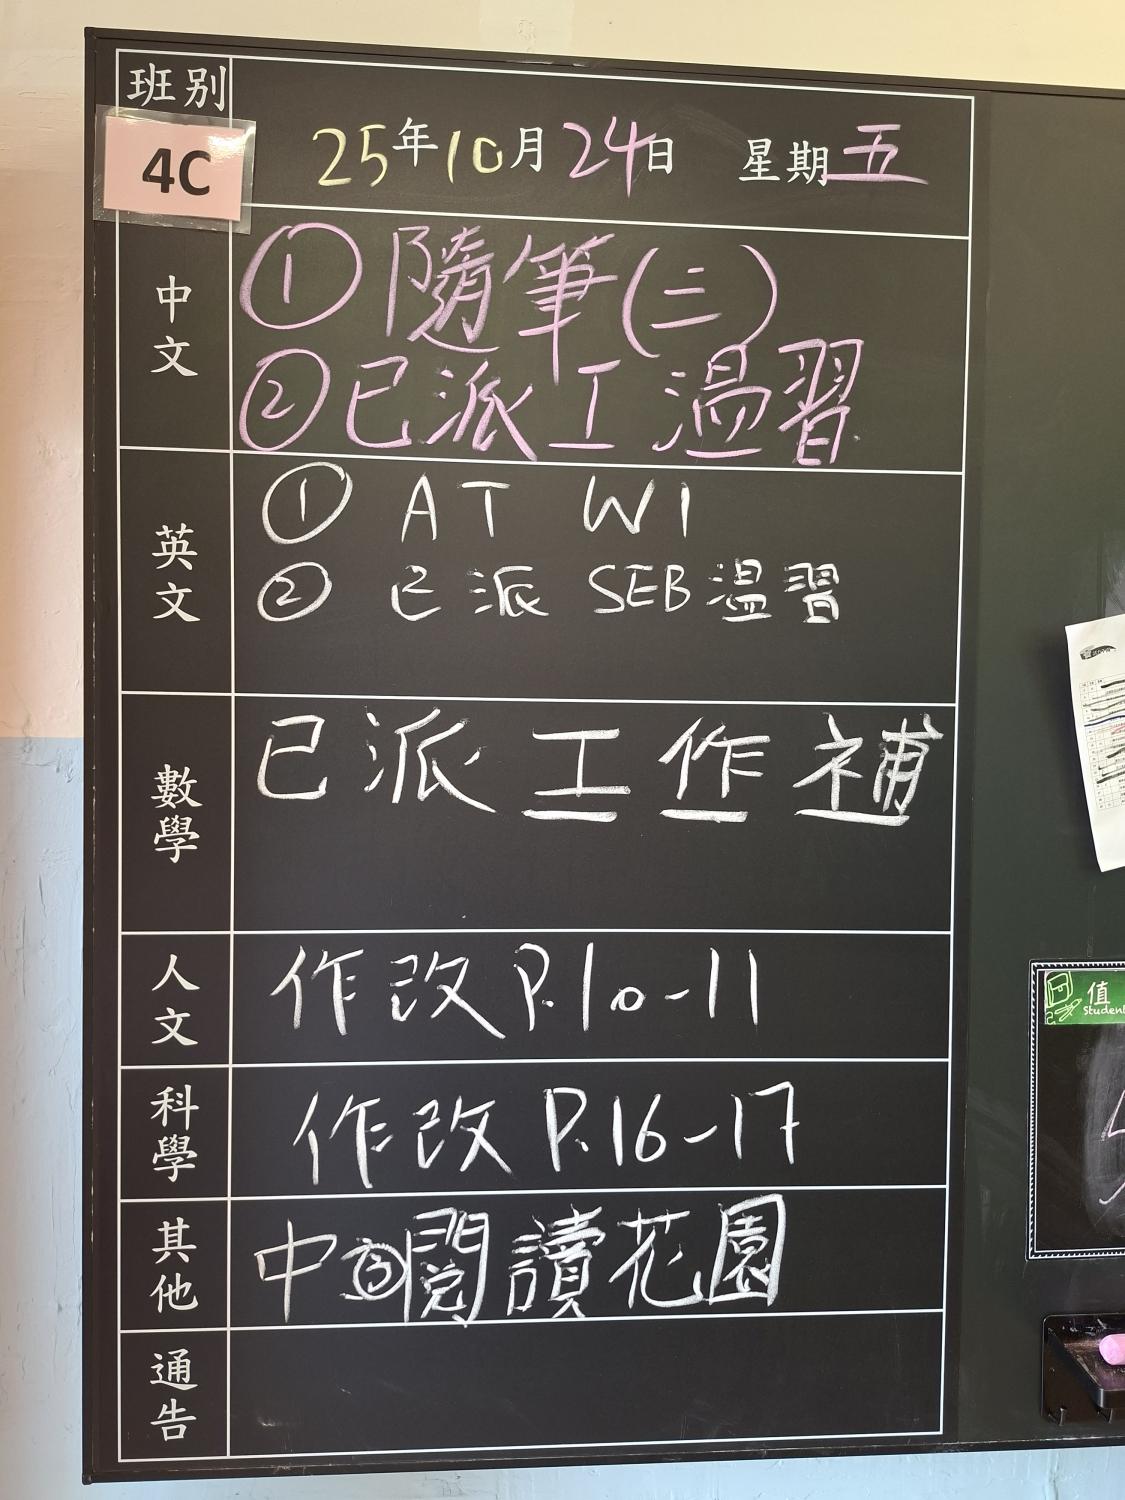 班別
4C
25年10月24日 星期五
中文
① 隨筆(三)
②已派工溫習
英文
① AT W1
② 已派 SEB溫習
數學
已派工作補
人文
作改 P.10-11
科學
作改 P.16-17
其他
中③閱讀花園
通告
值
Student